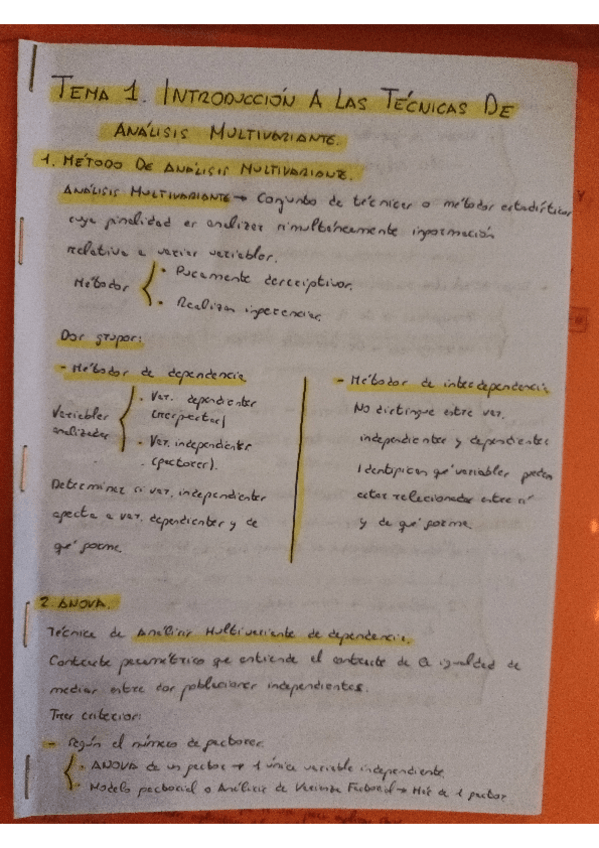 TEMA 1. INTRODUCCIÓN A LAS TÉCNICAS DE
ANÁLISIS MULTIVARIANTE.
1. MÉTODO DE ANÁLISIS MULTIVARIANTE.
ANÁLISIS MULTIVARIANTE → Conjunto de técnicas o métodos estadísticos
cuya finalidad es analizar simultáneamente información
relativa a varias variables.
Métodos
• Puramente descriptivos.
• Realizan inferencias.
Dos grupos:
- Métodos de dependencia
Variables analizadas
• Var. dependientes
(respuestas)
• Var. independientes
(factores).
Determinar si var. independientes
afecta a var. dependientes y de
qué forma.
- Métodos de interdependencia
No distingue entre var.
independientes y dependientes
Identifican qué variables pueden
estar relacionadas entre sí
y de qué forma
2. ANOVA.
Técnica de Análisis Multivariante de dependencia.
Contraste paramétrico que extiende el contraste de la igualdad de
medias entre dos poblaciones independientes.
Tres criterios:
- Según el número de factores
• ANOVA de un factor → 1 única variable independiente
• Modelo factorial o Análisis de Varianza Factorial → Más de 1 factor